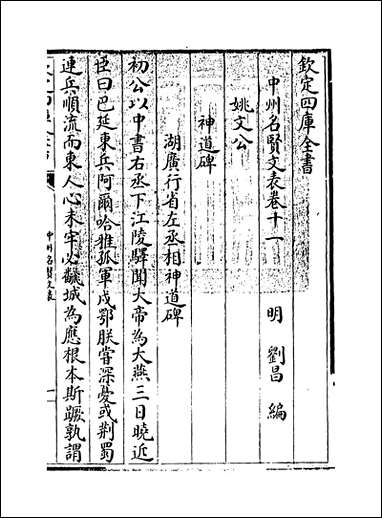 欽定四庫全書
中州名賢文表卷十一
明 劉昌 編
姚文公
神道碑
湖廣行省左丞相神道碑
初公以中書右丞下江陵驛聞大帝為大燕三日曉近
臣曰巴延東兵阿爾哈雅孤軍戍鄂朕嘗深憂或荆蜀
連兵順流而東人心未牢必翻城為應根本斯蹶孰謂
中州名賢文表
一